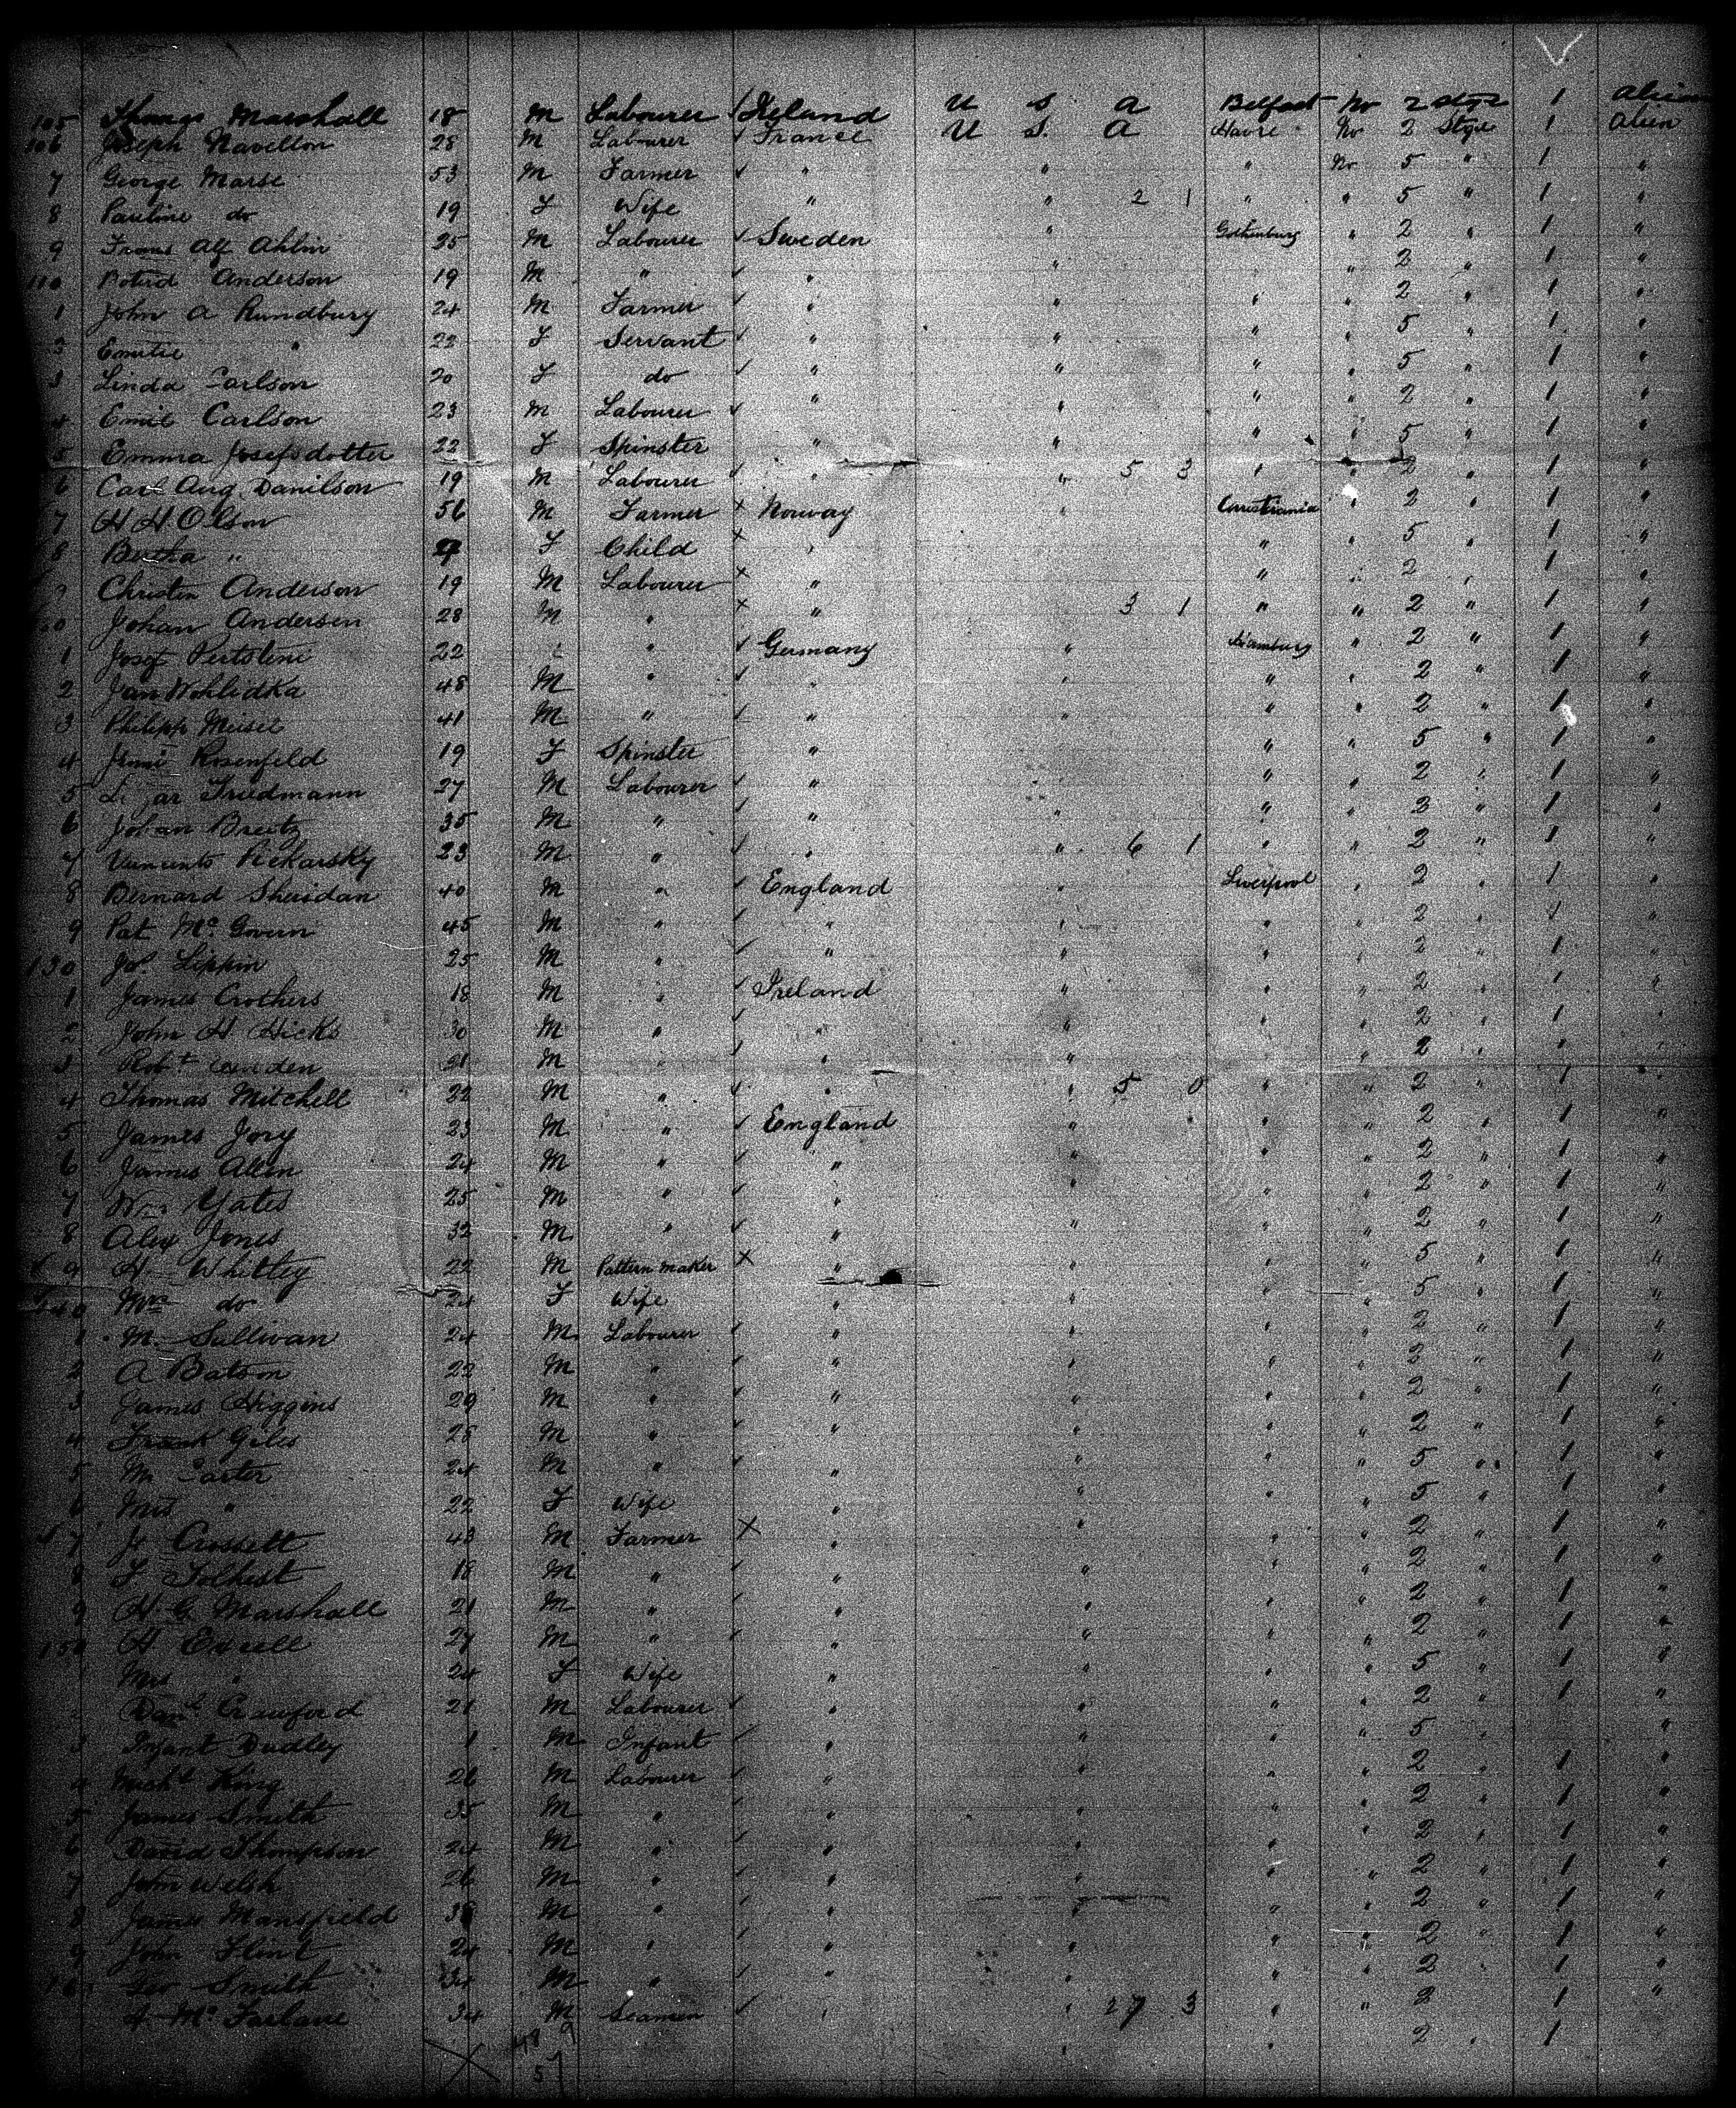 105 Thomas Marshall 18 M Labourer / Ireland U S A Belfast No 2 Stge 1 Alien
106 Joseph Navellon 28 M Labourer ✓ France U S. A Havre No 2 Stge 1 Alien
7 George Marse 53 M Farmer ✓ " " " No 5 " 1 "
8 Pauline do 19 F Wife " " 2 1 " " 5 " 1 "
9 Frans Alf Ahlin 25 M Labourer ✓ Sweden " Gothenburg " 2 " 1 "
110 Anderson 19 M " ✓ " " " 2 " 1 "
1 John A Rundbury 24 M Farmer ✓ " " " " 2 " 1 "
2 Emilie " 22 F Servant ✓ " " " " 5 " 1 "
3 Linda Carlson 20 F do ✓ " " " " 5 " 1 "
4 Emil Carlson 23 M Labourer ✓ " " " " 2 " 1 "
5 Emma Josefsdotter 22 F Spinster " " " " 5 " 1 "
6 Carl Aug. Danilson 19 M Labourer ✓ " " 5 3 " 2 " 1 "
7 H H Olson 56 M Farmer x Norway " Christiania " 2 " 1 "
8 Bertha " F Child x " " " 5 " 1 "
9 Christen Anderson 19 M Labourer x " " " 2 " 1 "
120 Johan Andersen 28 M " x " 3 1 " " 2 " 1 "
1 Josef Pertoleni 22 " " ✓ Germany " Hamburg " 2 " 1 "
2 Jan Wohlidka 48 M " ✓ " " " " 2 " 1 "
3 Philipp Meisel 41 M " ✓ " " " " 2 " 1 "
4 Rosenfeld 19 F Spinster " " " " 5 " 1 "
5 Friedmann 27 M Labourer ✓ " " " 2 " 1 "
6 Johan Breitz 35 M " ✓ " " " " 2 " 1 "
7 Pickarsky 23 M " ✓ " " 6 1 " " 2 " 1 "
8 Bernard Sheridan 40 M " ✓ England " Liverpool " 2 " 1 "
9 Pat McGovern 45 M " ✓ " " " " 2 " 1 "
130 Jos. Lippin 25 M " ✓ " " " " 2 " 1 "
1 James Crothers 18 M " ✓ Ireland " " " 2 " 1 "
2 John H Hicks 30 M " ✓ " " " " 2 " 1 "
3 Robt 21 M " ✓ " " " " 2 " 1 "
4 Thomas Mitchell 22 M " ✓ " " 5 0 " " 2 " 1 "
5 James Jory 23 M " ✓ England " " " 2 " 1 "
6 James Allen 24 M " ✓ " " " " 2 " 1 "
7 Wm Yates 25 M " ✓ " " " " 2 " 1 "
8 Alex Jones 32 M " ✓ " " " " 2 " 1 "
9 H Whitley 22 M Pattern maker x " " " " 5 " 1 "
140 Mrs do 24 F Wife " " " " 5 " 1 "
1 M Sullivan 24 M Labourer ✓ " " " " 2 " 1 "
2 A Batson 22 M " ✓ " " " " 2 " 1 "
3 James Higgins 29 M " ✓ " " " " 2 " 1 "
4 Frank Giles 28 M " ✓ " " " " 2 " 1 "
5 M Carter 24 M " ✓ " " " " 5 " 1 "
6 Mrs " 22 F Wife " " " 5 " 1 "
7 Jr Crossett 43 M Farmer x " " " " 2 " 1 "
8 F Tolhest 18 M " ✓ " " " " 2 " 1 "
9 H G Marshall 21 M " ✓ " " " " 2 " 1 "
150 H Exrell 27 M " ✓ " " " " 2 " 1 "
Mrs " 24 F Wife " " " " 5 " 1 "
Danl Crawford 21 M Labourer ✓ " " " " 2 " 1 "
3 Infant Dudley 1 M Infant ✓ " " " " 5 "
4 Michl King 26 M Labourer ✓ " " " " 2 " 1 "
5 James Smith 35 M " ✓ " " " " 2 " 1 "
6 David Thompson 24 M " ✓ " " " " 2 " 1 "
7 John Welsh 26 M " ✓ " " " " 2 " 1 "
8 James Mansfield 38 M " ✓ " " " " 2 " 1 "
9 John Flint 24 M " ✓ " " " " 2 " 1 "
Geo Smith M " ✓ " " " " 2 " 1 "
McFarlane 34 M Seaman ✓ " " 27 3 " " 2 " 1
48 9
57